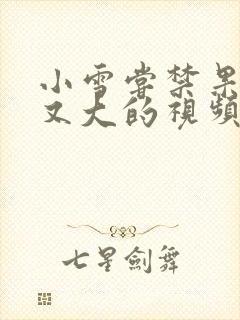 小雪嘗禁果
又大的視頻
七星劍舞